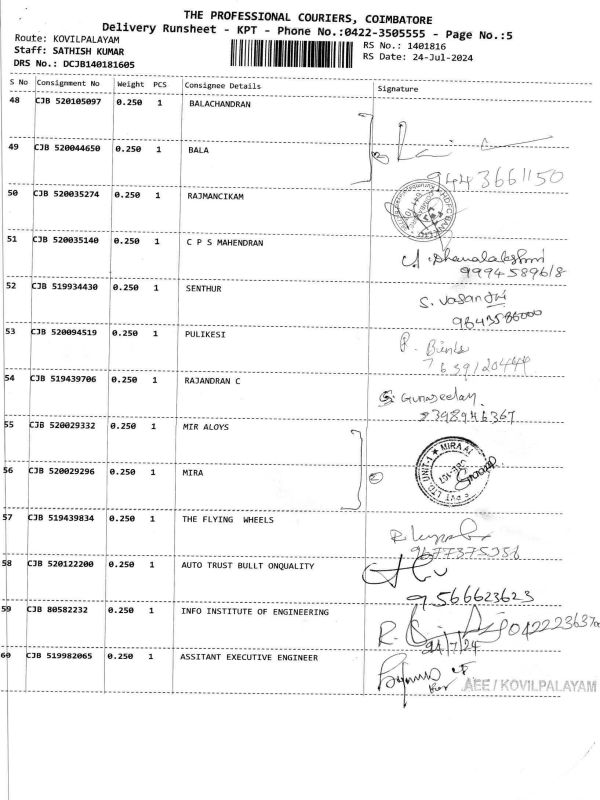 THE PROFESSIONAL COURIERS, COIMBATORE
Delivery Runsheet - KPT - Phone No.:0422-3505555 - Page No.:5
Route: KOVILPALAYAM
Staff: SATHISH KUMAR
DRS No.: DCJB140181605
RS No.: 1401816
RS Date: 24-Jul-2024
S No Consignment No Weight PCS Consignee Details Signature
48 CJB 520105097 0.250 1 BALACHANDRAN
49 CJB 520044650 0.250 1 BALA
9443661150
50 CJB 520035274 0.250 1 RAJMANCIKAM
HDFC BANK LTD
51 CJB 520035140 0.250 1 C P S MAHENDRAN
Dhanalakshmi
9994589618
52 CJB 519934430 0.250 1 SENTHUR
S. Vasanthi
9843586000
53 CJB 520094519 0.250 1 PULIKESI
7659120444
54 CJB 519439706 0.250 1 RAJANDRAN C
G. Gunaseelan
8398946367
55 CJB 520029332 0.250 1 MIR ALOYS
56 CJB 520029296 0.250 1 MIRA
57 CJB 519439834 0.250 1 THE FLYING WHEELS
9677375256
58 CJB 520122200 0.250 1 AUTO TRUST BULLT ONQUALITY
9566623623
59 CJB 80582232 0.250 1 INFO INSTITUTE OF ENGINEERING
24/7/24
60 CJB 519982065 0.250 1 ASSITANT EXECUTIVE ENGINEER
AEE / KOVILPALAYAM